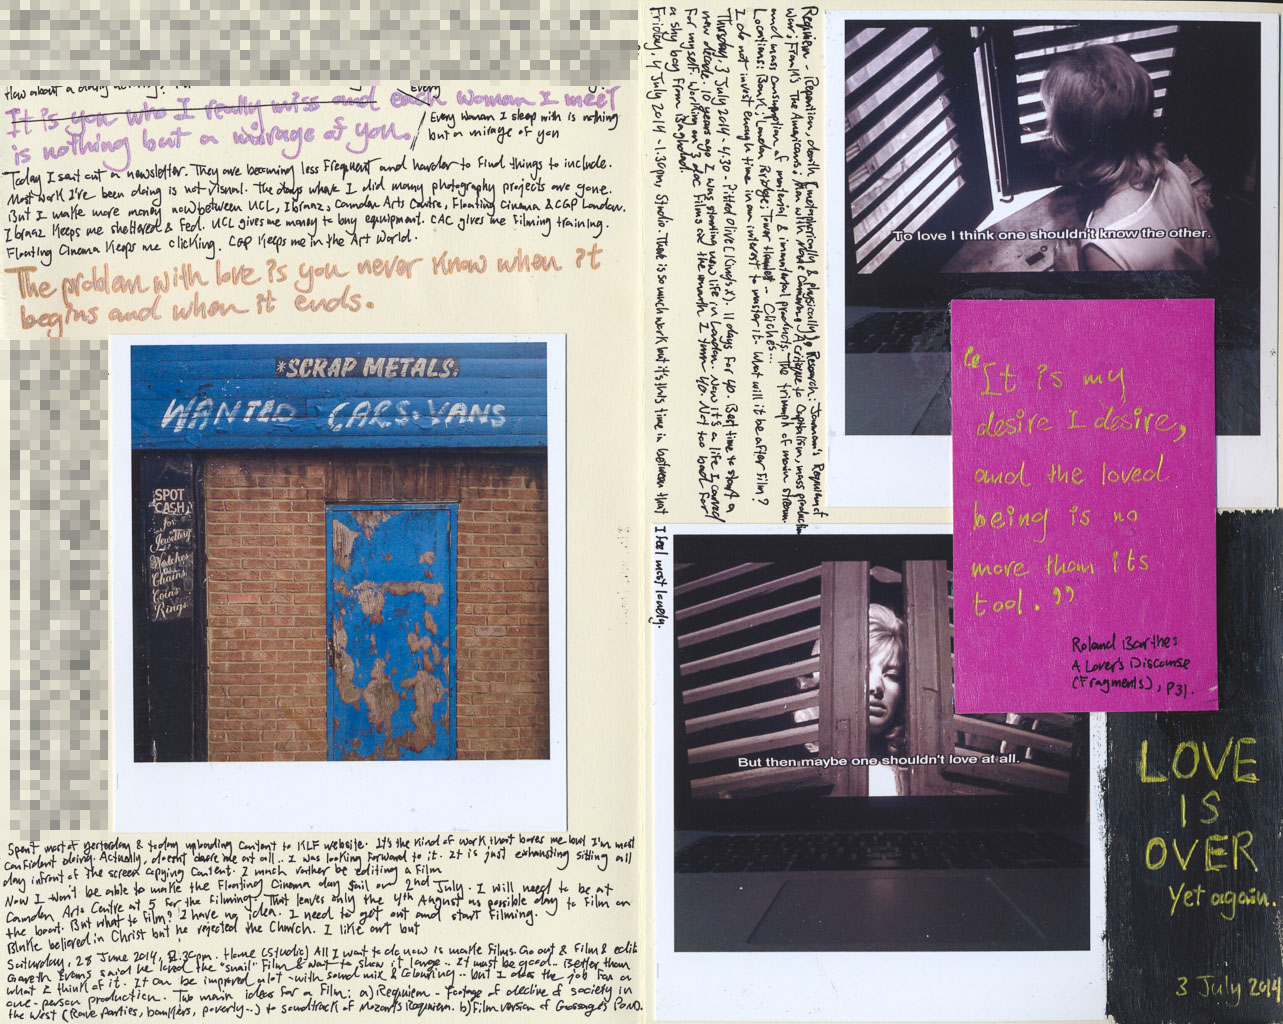 How about a diary
It is you who I really miss and each woman I meet
Every
is nothing but a mirage of you.
Every woman I sleep with is nothing
but a mirage of you
Today I sent out a newsletter. They are becoming less frequent and harder to find things to include.
Most work I've been doing is not visual. The days where I did many photography projects are gone.
But I make more money now between UCL, Ibraaz, Camden Arts Centre, Floating Cinema & CGP London.
Ibraaz keeps me sheltered & fed. UCL gives me money to buy equipment. CAC gives me filming training.
Floating Cinema keeps me clicking. CGP keeps me in the Art World.
The problem with love is you never know when it
begins and when it ends.
*SCRAP METALS.
WANTED CARS. VANS
SPOT
CASH
for
Jewellery
Watches
Chains
Coins
Rings
Spent most of yesterday & today uploading content to KLF website. It's the kind of work that bores me but I'm most
confident doing. Actually, doesn't bore me at all.. I was looking forward to it. It is just exhausting sitting all
day infront of the screen copying content. I much rather be editing a film
Now I won't be able to make the Floating Cinema day sail on 2nd July. I will need to be at
Camden Arts Centre at 5 for the filming. That leaves only the 4th August as possible day to film on
the boat. But what to film? I have no idea. I need to get out and start filming.
Blake believed in Christ but he rejected the Church. I like art but
Saturday, 28 June 2014, 12.30pm. Home (Studio) All I want to do now is make films. Go out & film & edit
Gareth Evans said he loved the "snail" film & want to show it large.. It must be good.. Better than
what I think of it. It can be improved alot with sound mix & colouring.. but I does the job for a
one-person production. Two main ideas for a film: a) Requiem - footage of decline of society in
the West (Rave parties, bankers, poverty..) to soundtrack of Mozart's Requiem. b) film version of
Requiem - Repetition, death (metaphorically & physically). Research: Jarman's Requiem of
War; Frank's The Americans; Man with a Movie Camera; A critique to Capitalism, mass production
and mass consumption of material & immaterial products. The triumph of main stream.
Locations: Bank; London Bridge; Tower Hamlet - Clichés...
I do not invest enough time in an interest to master it. What will it be after Film?
Thursday, 3 July 2014 - 4.30 - Pitted Olive (Kings X), 11 days for 40. Best time to start a
new decade. 10 years ago I was starting new life in London. Now it's a life I carved
for myself. Working on 3 doc films at the month I turn 40. Not too bad for
a shy boy from Baghdad.
Friday, 4 July 2014 - 1.30pm, Studio - There is so much work but it's this time in between that I feel most lonely.
To love I think one shouldn't know the other.
"It is my
desire I desire,
and the loved
being is no
more than its
tool."
Roland Barthes
A Lover's Discourse
(Fragments), P31.
But then maybe one shouldn't love at all.
LOVE
IS
OVER
Yet again.
3 July 2014